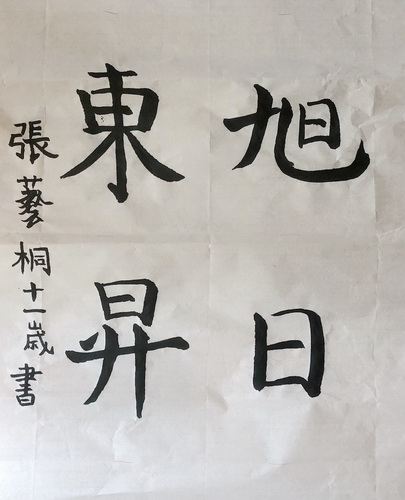 旭日
東昇
張藝桐十一歲書